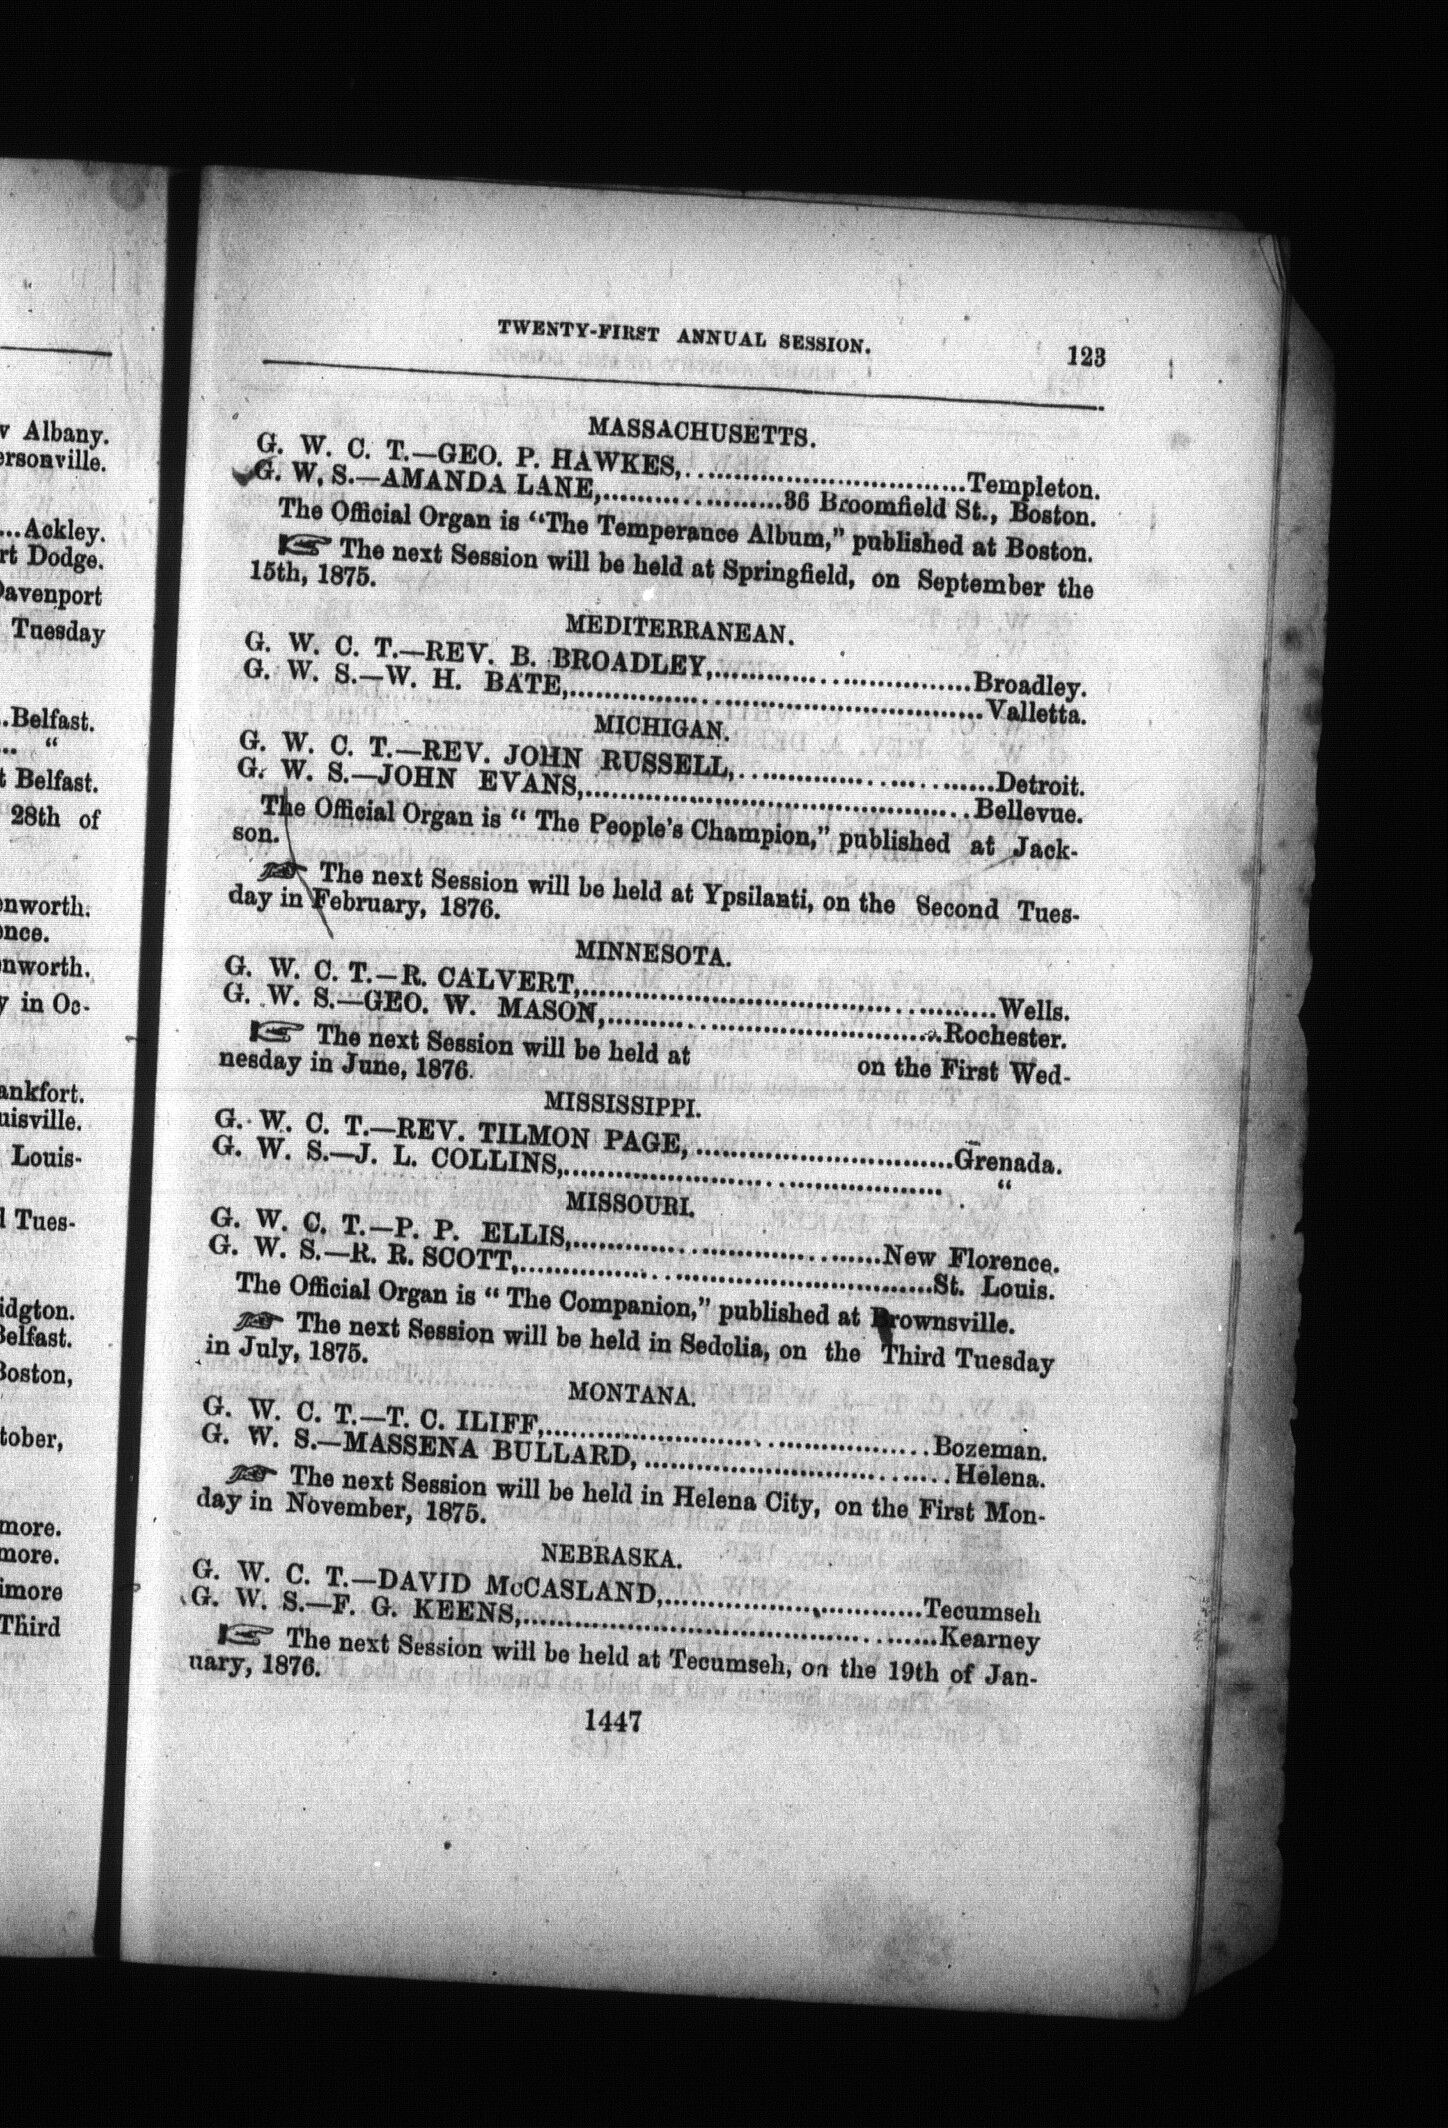 v Albany.
ersonville.
...Ackley.
rt Dodge.
Davenport
Tuesday
..Belfast.
... "
t Belfast.
28th of
enworth.
ence.
enworth.
y in Oc-
ankfort.
uisville.
Louis-
l Tues-
idgton.
Belfast.
Boston,
tober,
more.
more.
imore
Third
TWENTY-FIRST ANNUAL SESSION. 123
MASSACHUSETTS.
G. W. C. T.—GEO. P. HAWKES,..............................Templeton.
G. W. S.—AMANDA LANE,....................36 Broomfield St., Boston.
The Official Organ is "The Temperance Album," published at Boston.
☞ The next Session will be held at Springfield, on September the
15th, 1875.
MEDITERRANEAN.
G. W. C. T.—REV. B. BROADLEY,..............................Broadley.
G. W. S.—W. H. BATE,..............................Valletta.
MICHIGAN.
G. W. C. T.—REV. JOHN RUSSELL,..............................Detroit.
G. W. S.—JOHN EVANS,..............................Bellevue.
The Official Organ is "The People's Champion," published at Jack-
son.
☞ The next Session will be held at Ypsilanti, on the Second Tues-
day in February, 1876.
MINNESOTA.
G. W. C. T.—R. CALVERT,..............................Wells.
G. W. S.—GEO. W. MASON,..............................Rochester.
☞ The next Session will be held at on the First Wed-
nesday in June, 1876.
MISSISSIPPI.
G. W. C. T.—REV. TILMON PAGE,..............................Grenada.
G. W. S.—J. L. COLLINS,.............................. "
MISSOURI.
G. W. C. T.—P. P. ELLIS,..............................New Florence.
G. W. S.—R. R. SCOTT,..............................St. Louis.
The Official Organ is "The Companion," published at Brownsville.
☞ The next Session will be held in Sedclia, on the Third Tuesday
in July, 1875.
MONTANA.
G. W. C. T.—T. C. ILIFF,..............................Bozeman.
G. W. S.—MASSENA BULLARD,..............................Helena.
☞ The next Session will be held in Helena City, on the First Mon-
day in November, 1875.
NEBRASKA.
G. W. C. T.—DAVID McCASLAND,..............................Tecumseh
G. W. S.—F. G. KEENS,..............................Kearney
☞ The next Session will be held at Tecumseh, on the 19th of Jan-
uary, 1876.
1447